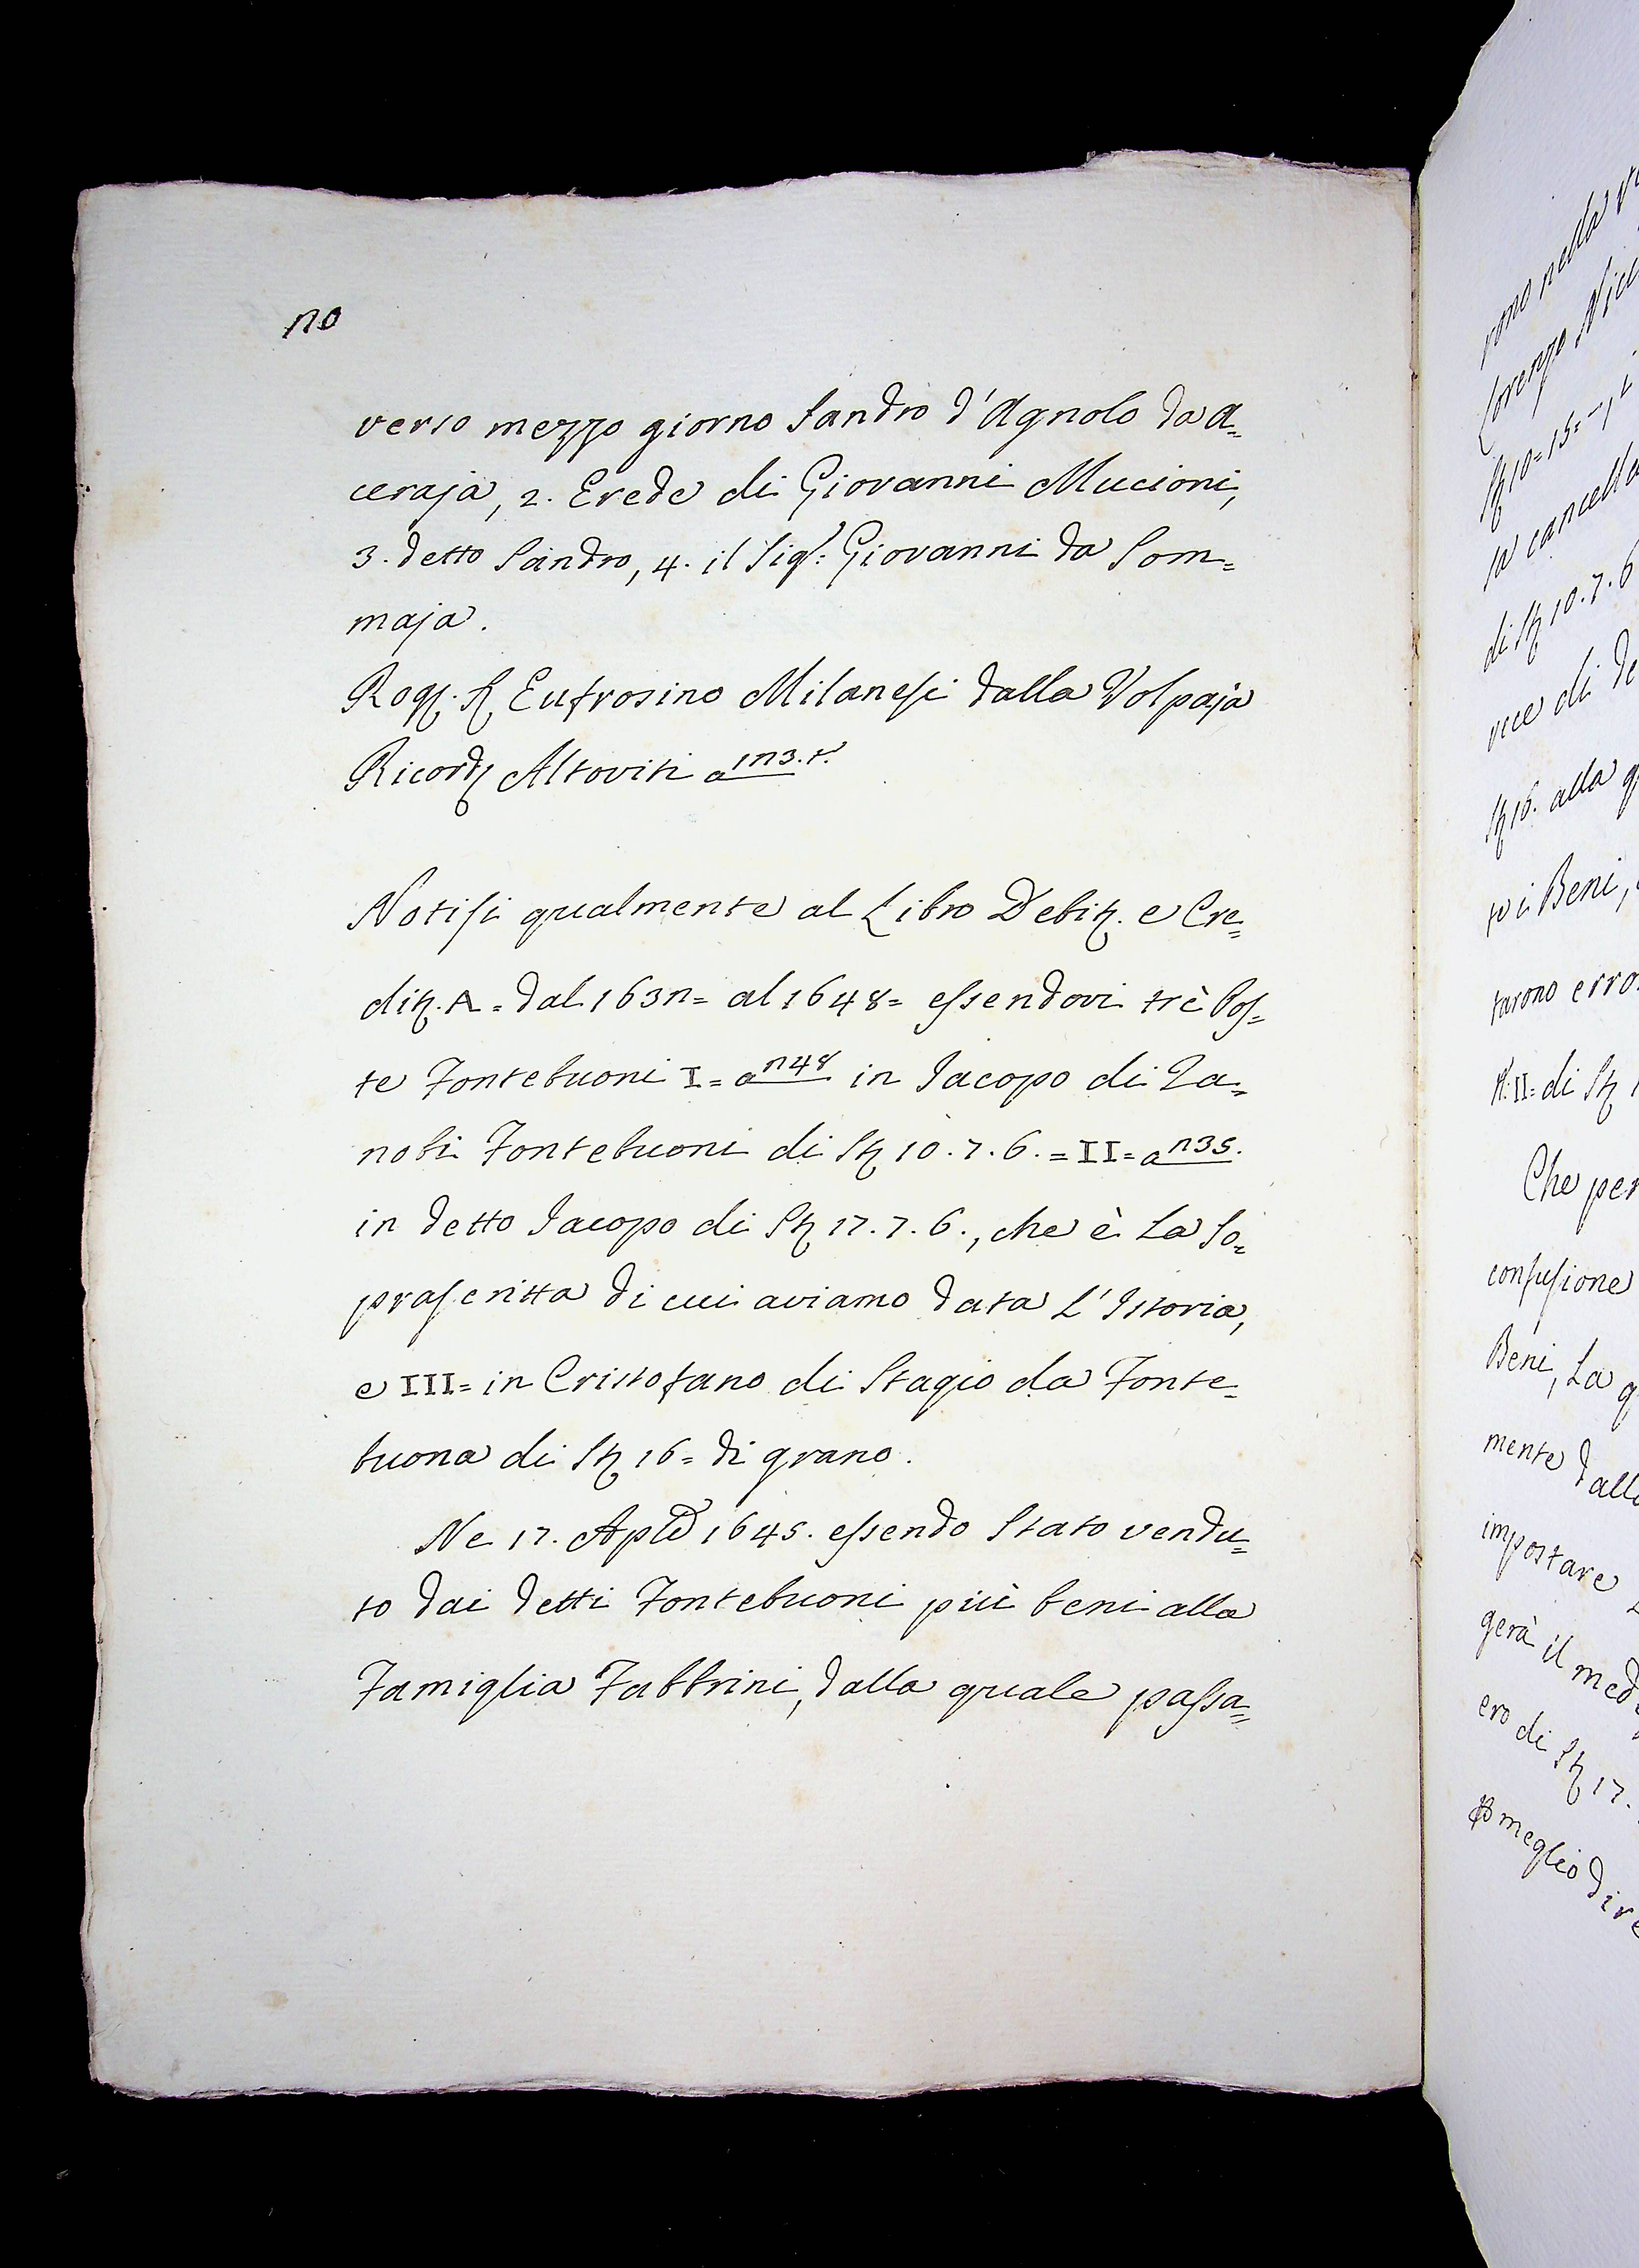 20
verso mezzo giorno Sandro d'Agnolo da A=
ceraja, 2. Erede di Giovanni Mucioni,
3. detto Sandro, 4. il Sig.r: Giovanni da Som=
maja.
Rog. S. Eufrosino Milanesi dalla Volpaja
Ricord. Altoviti a 123. t.
Notisi qualmente al Libro Debit. e Cre=
dit. A = dal 1632 = al 1648 = essendovi trè Pos=
te Fontebuoni I = a 248 in Jacopo di Za=
nobi Fontebuoni di St 10.7.6. = II = a 235.
in detto Jacopo di St 17.7.6., che è La So=
prascritta di cui aviamo data L'Istoria,
e III = in Cristofano di Stagio da Fonte=
buona di St 16 = di grano.
Ne 17. Aple 1645. essendo Stato vendu=
to dai detti Fontebuoni più beni alla
Famiglia Fabbrini, dalla quale passa=
rono nella
Lorenzo
St 10=15=
la cancella
di St 10.7.6
vece di de
St 16. alla q
to i Beni,
tarono erro
N: II = di St
Che per
confusione
Beni, La q
mente dall
impostare
gerà il med
ero di St 17.
o meglio dire